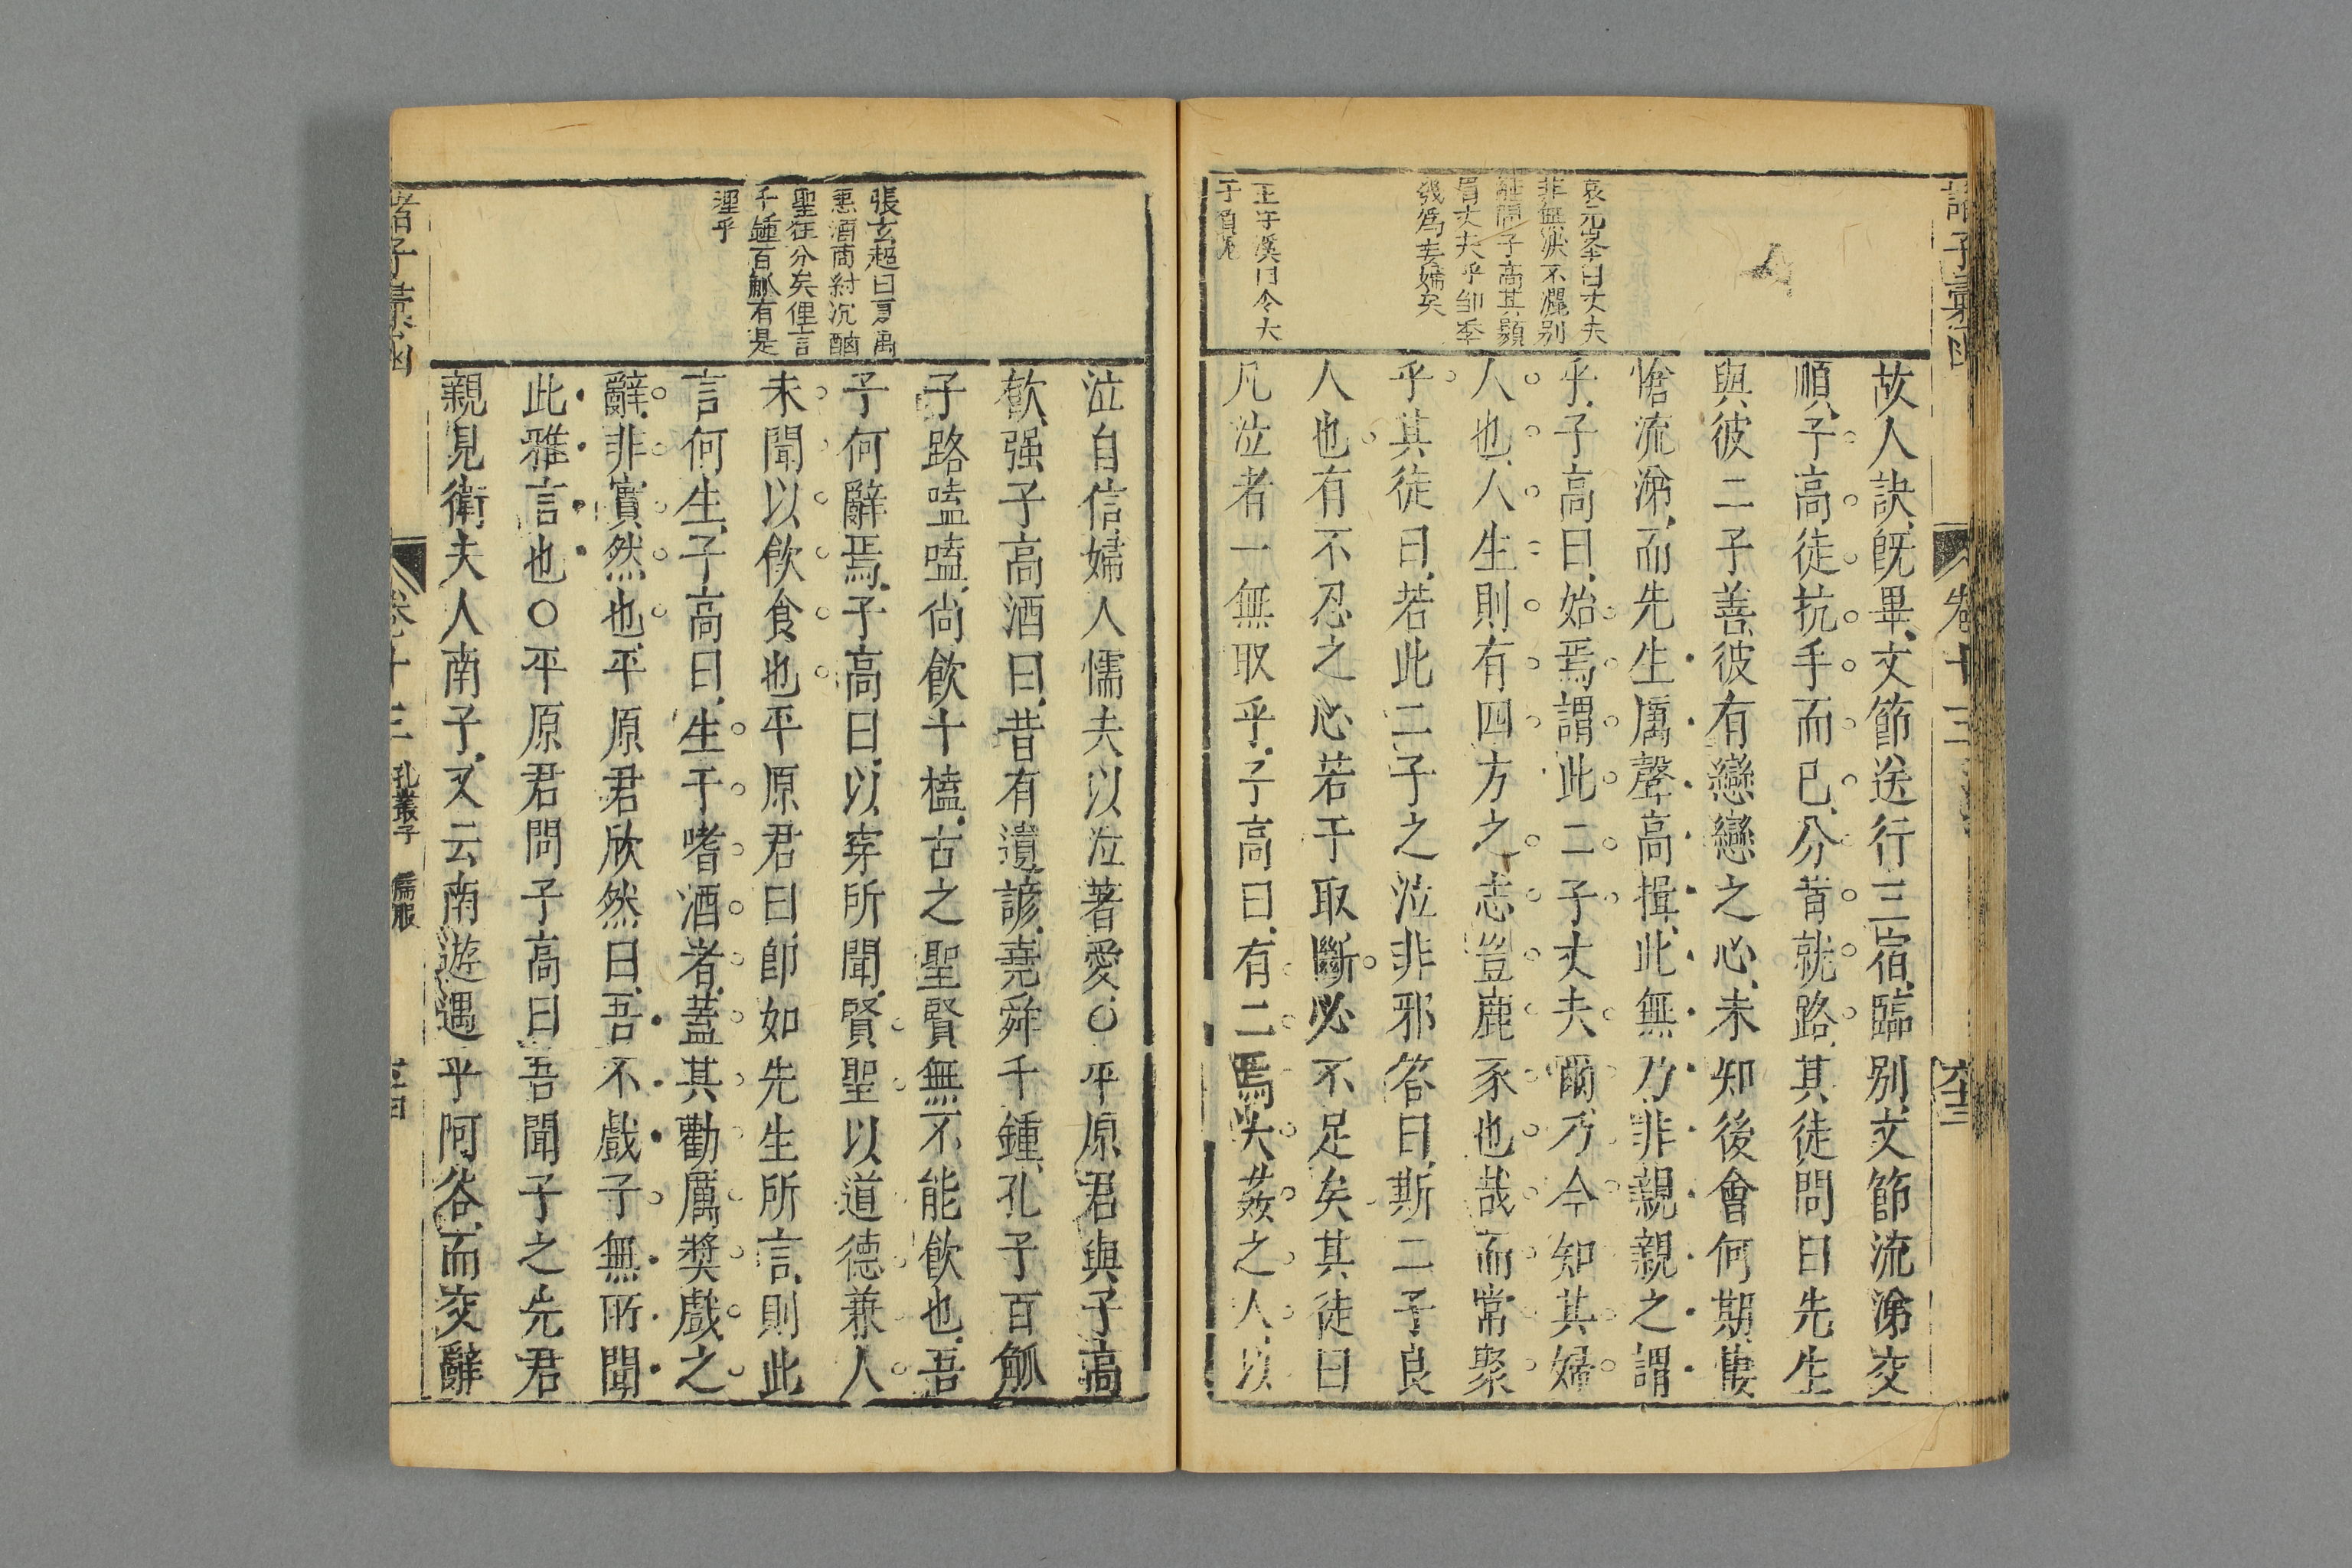 故人訣既畢文節送行三宿臨別文節流涕交
順子高徒抗手而已分背就路其徒問曰先生
與彼二子善彼有戀戀之心未知後會何期悽
愴流涕而先生厲聲高揖此無乃非親親之謂
乎子高曰始焉謂此二子丈夫爾乃今知其婦
人也人生則有四方之志豈鹿豕也哉而常聚
乎其徒曰若此二子之泣非邪答曰斯二子良
人也有不忍之心若于取斷必不足矣其徒曰
凡泣者一無取乎子高曰有二焉大姦之人以
袁元峯曰丈夫
非無淚不灑別
離間子高其顥
眉丈夫乎鄒季
幾為夫婦矣
卷十三
泣自信婦人懦夫以泣著愛○平原君與子高
歡强子高酒曰昔有遺諺堯舜千鍾孔子百觚
子路嗑嗑尚飲十榼古之聖賢無不能飲也吾
子何辭焉子高曰以穿所聞賢聖以道德兼人
未聞以飲食也平原君曰卽如先生所言則此
言何生子高曰生于嗜酒者蓋其勸厲奬戲之
辭非實然也平原君欣然曰吾不戲子無所聞
此雅言也○平原君問子高曰吾聞子之先君
親見衛夫人南子又云南遊遇乎阿谷而交辭
張玄超曰夏禹
惡酒商紂沉酗
聖狂分矣俚言
千鍾百觚有是
理乎
諸子彙函
卷十三
孔叢子
儒服